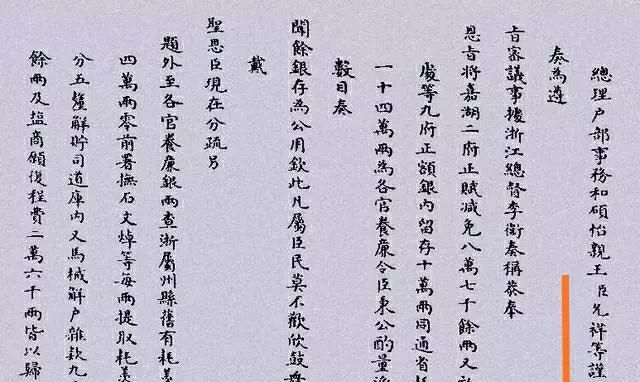 總理户部事務和碩怡親王臣允祥等謹
奏為遵
旨審議事據浙江總督李衛奏稱恭奉
恩旨將嘉湖二府正賦減免八萬七千餘兩又
處等九府正額銀内留存十萬兩同通省
一十四萬兩為各官養廉令臣秉公酌量
數目奏
聞餘銀存為公用欽此凡屬臣民莫不歡欣鼓舞
戴
聖恩臣現在分疏另
題外至各官養廉銀兩查浙屬州縣舊有耗羡
四萬兩零前署撫石文焯等每兩提取耗羡
分五釐解貯司道庫内又馬械解户雜款九
餘兩及塩商願復程費二萬六千兩皆以歸